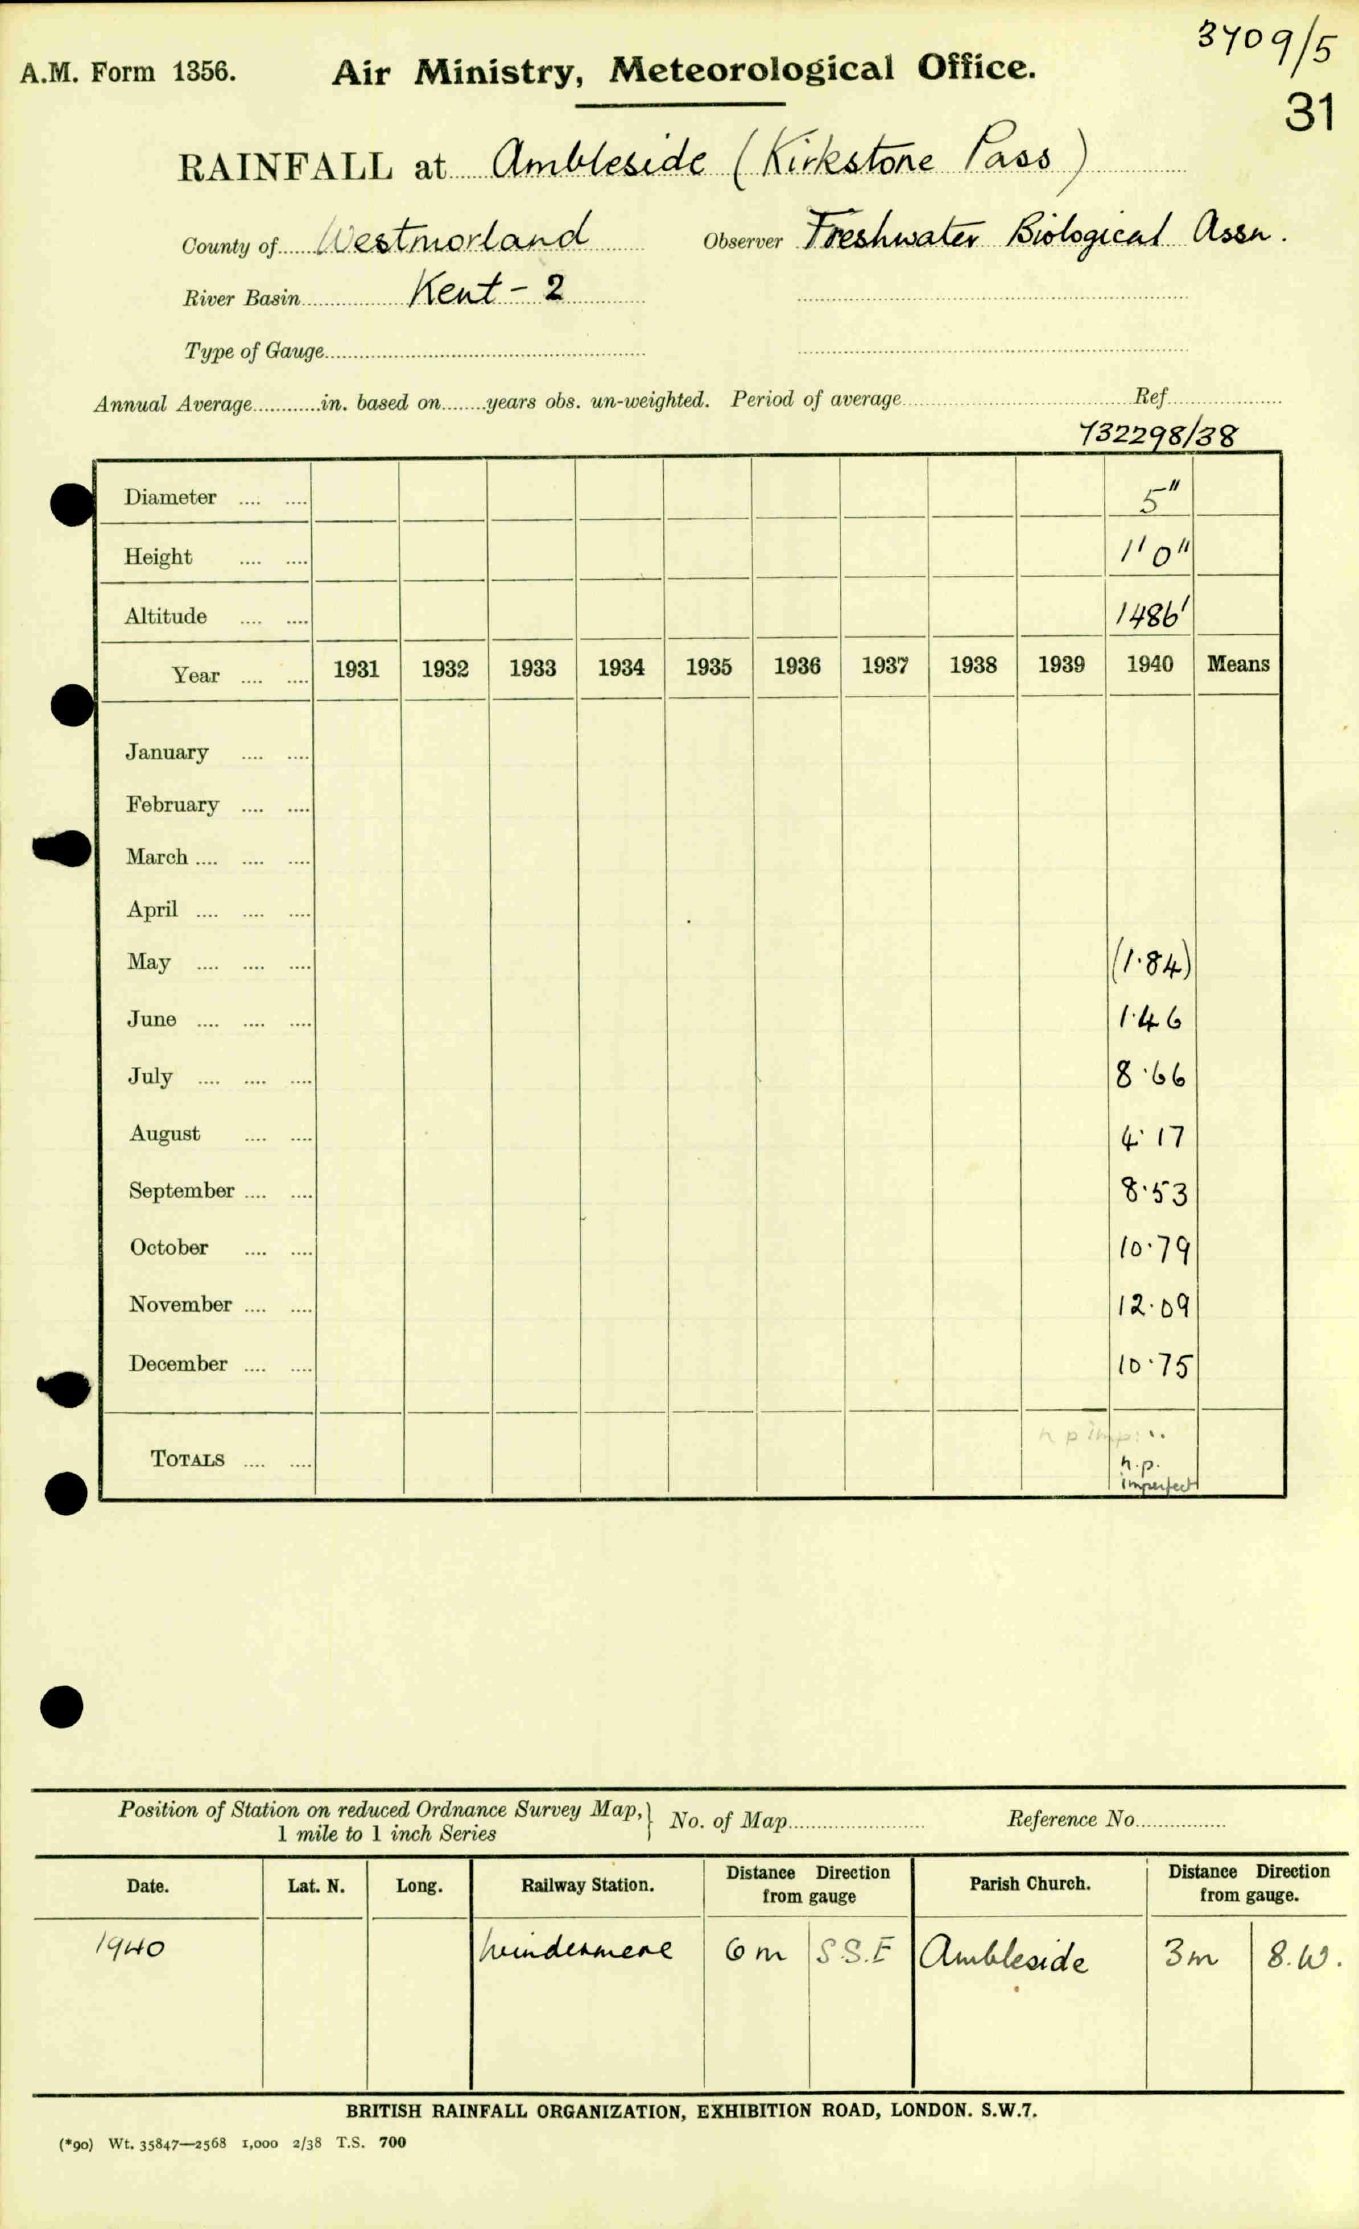 3709/5
A.M. Form 1356. Air Ministry, Meteorological Office.
31
RAINFALL at Ambleside (Kirkstone Pass)
County of Westmorland Observer Freshwater Biological Assn.
River Basin Kent - 2
Type of Gauge
Annual Average in. based on years obs. un-weighted. Period of average Ref
732298/38
Diameter 5"
Height 1' 0"
Altitude 1486'
Year 1931 1932 1933 1934 1935 1936 1937 1938 1939 1940 Means
January
February
March
April
May (1.84)
June 1.46
July 8.66
August 4.17
September 8.53
October 10.79
November 12.09
December 10.75
TOTALS n.p.
imperfect
Position of Station on reduced Ordnance Survey Map,} No. of Map Reference No.
1 mile to 1 inch Series
Date. Lat. N. Long. Railway Station. Distance Direction from gauge Parish Church. Distance Direction from gauge.
1940 Windermere 6 m S.S.E Ambleside 3m S.W.
BRITISH RAINFALL ORGANIZATION, EXHIBITION ROAD, LONDON. S.W.7.
(*90) Wt. 35847—2568 1,000 2/38 T.S. 700